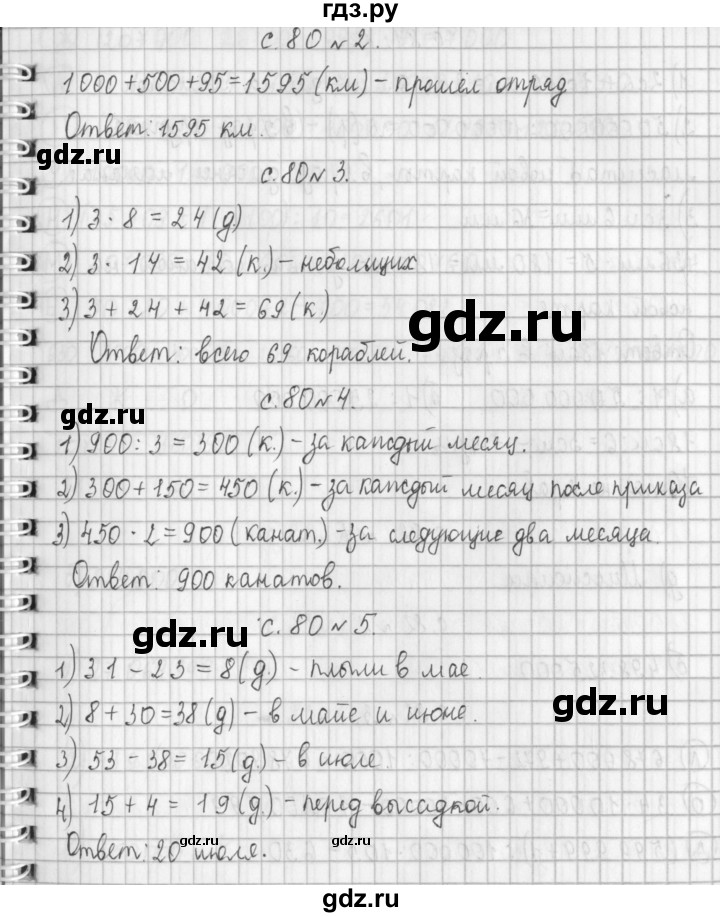 гдз.ру
с. 80 № 2.
1000+500+95=1595 (км) - прошёл отряд
Ответ: 1595 км.
gdz.ru
с. 80 № 3.
1) 3 · 8 = 24 (д)
2) 3 · 14 = 42 (к.) - небольших
3) 3 + 24 + 42 = 69 (к)
gdz.ru
Ответ: всего 69 кораблей.
с. 80 № 4.
gdz.ru
1) 900 : 3 = 300 (к.) - за каждый месяц.
2) 300 + 150 = 450 (к.) - за каждый месяц после приказа
3) 450 · 2 = 900 (канат.) - за следующие два месяца.
Ответ: 900 канатов.
с. 80 № 5.
gdz.ru
1) 31 - 23 = 8 (д.) - плыли в мае
2) 8 + 30 = 38 (д) - в майе и июне.
gdz.ru
3) 53 - 38 = 15 (д.) - в июле
4) 15 + 4 = 19 (д.) - перед высадкой.
Ответ: 20 июля.
gdz.ru
gdz.ru
gdz.ru